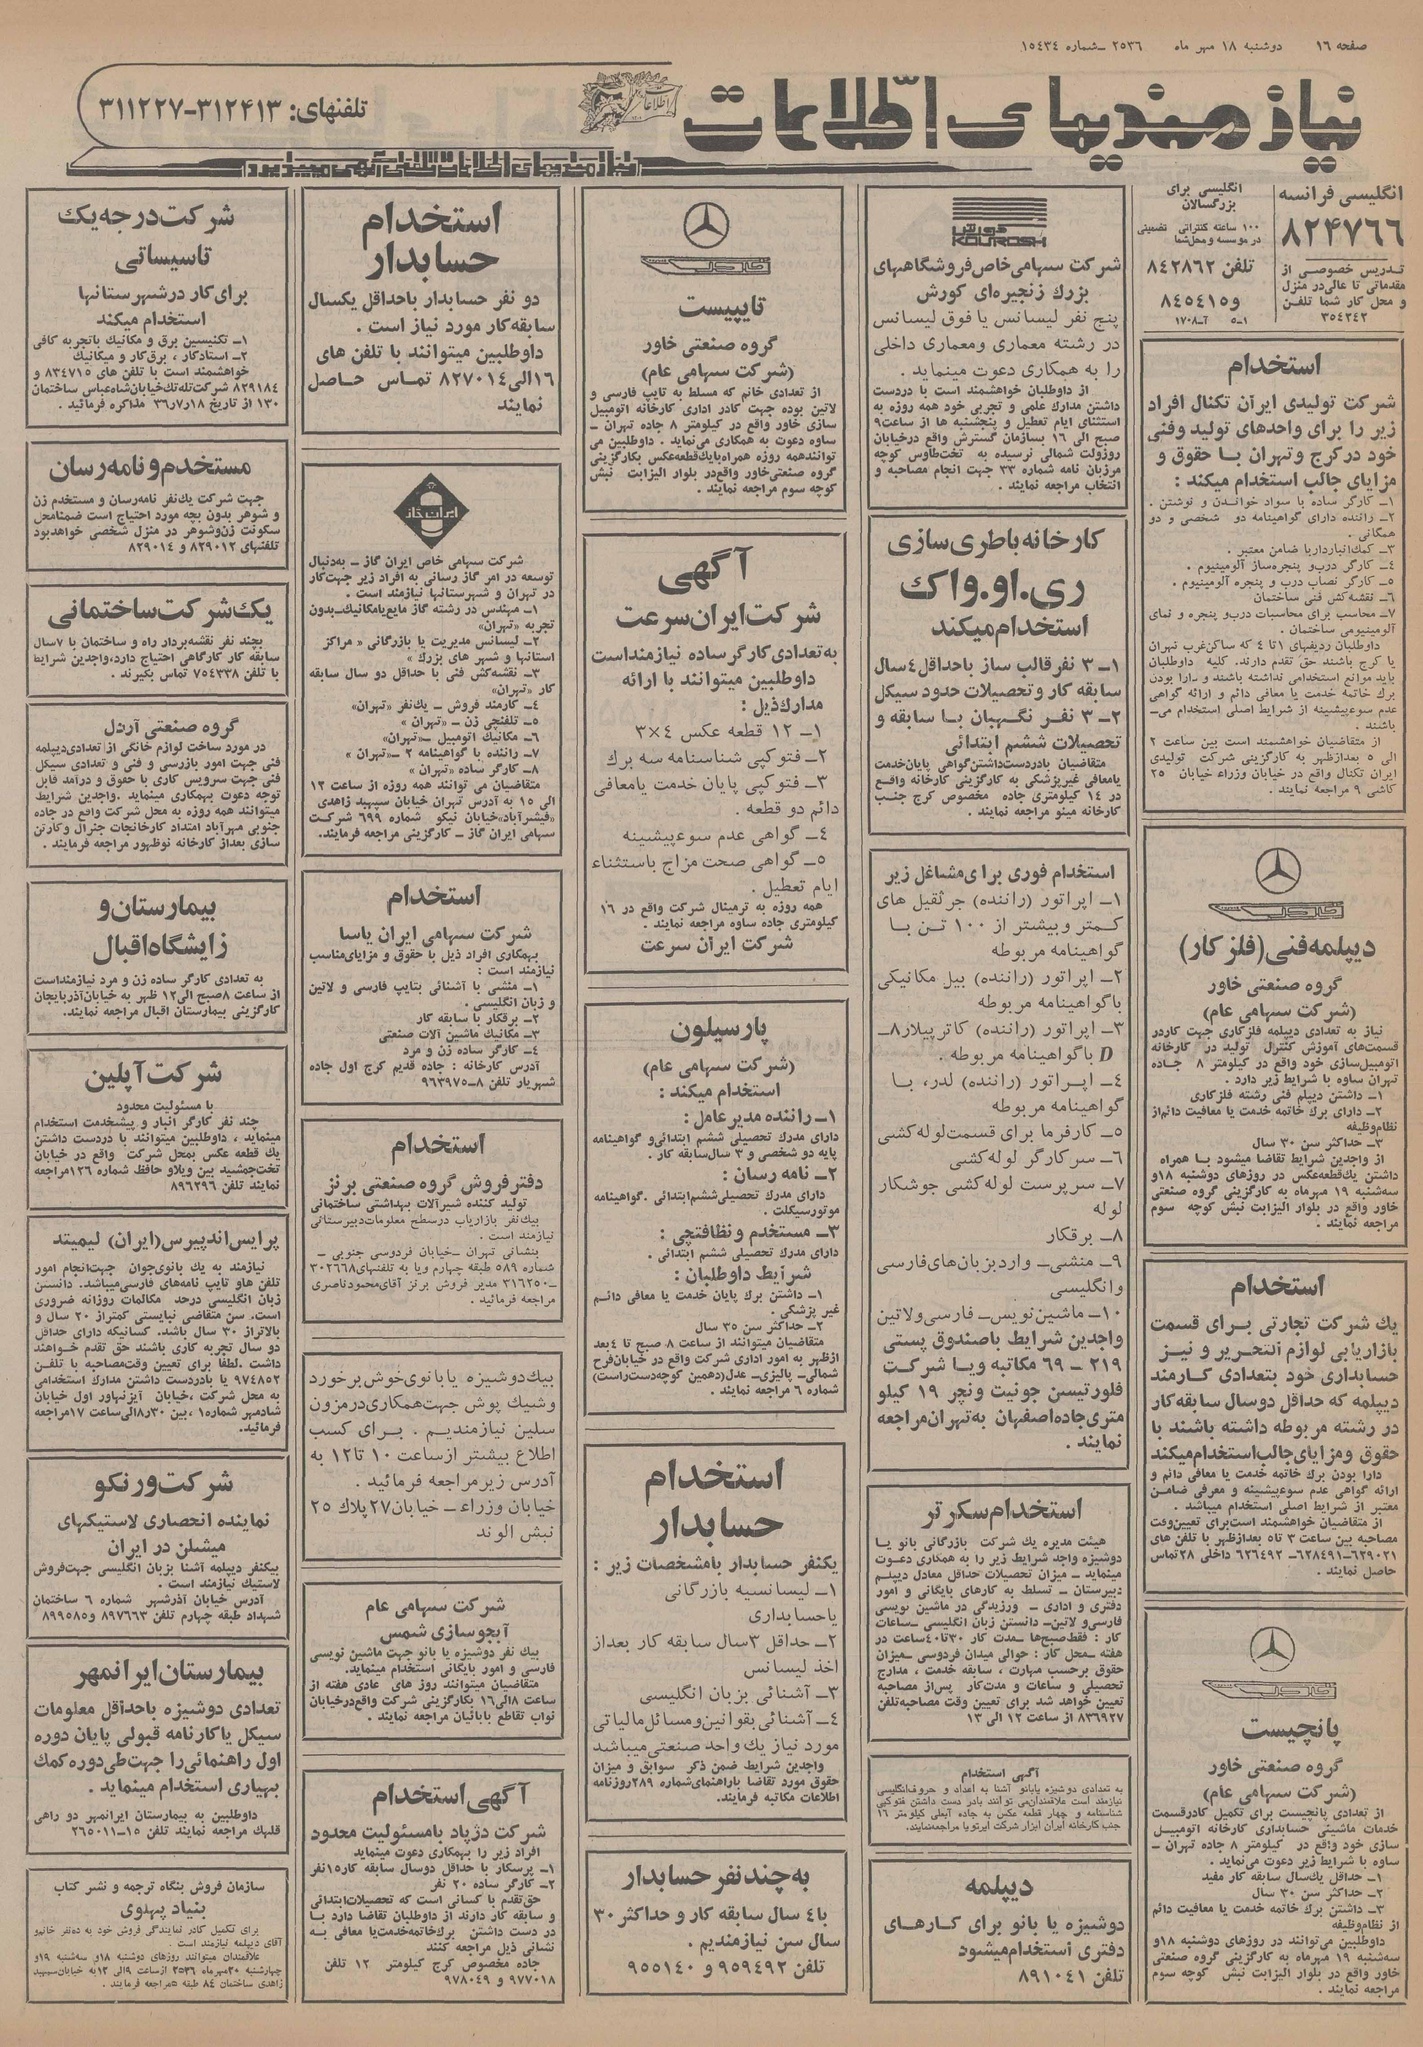 صفحه ۱۶ دوشنبه ۱۸ مهر ماه ۲۵۳۶ ـ شماره ۱۵۴۳۴
نیازمندیهای اطلاعات
تلفنهای: ۳۱۲۴۱۳-۳۱۱۲۲۷
نیازمندیهای اطلاعات تلفنی آگهی میپذیرد
انگلیسی فرانسه
۸۲۴۷۶۶
تدریس خصوصی از
مقدماتی تا عالی در منزل
و محل کار شما تلفن
۳۵۴۲۴۲
انگلیسی برای
بزرگسالان
۱۰۰ ساعته کنتراتی تضمینی
در موسسه و محل شما
تلفن ۸۴۲۸۶۲
و ۸۴۵۴۱۵
۱ـ۵ آـ۱۷۰۸
استخدام
شرکت تولیدی ایران تکنال افراد
زیر را برای واحدهای تولید وفنی
خود در کرج و تهران با حقوق و
مزایای جالب استخدام میکند :
۱ـ کارگر ساده با سواد خواندن و نوشتن .
۲ـ راننده دارای گواهینامه دو شخصی و دو
همگانی .
۳ـ کمك انباردار با ضامن معتبر .
۴ـ کارگر درب و پنجره‌ساز آلومینیوم .
۵ـ کارگر نصاب درب و پنجره آلومینیوم .
۶ـ نقشه کش فنی ساختمان
۷ـ محاسب برای محاسبات درب و پنجره و نمای
آلومینیومی ساختمان .
داوطلبان ردیفهای ۱ تا ٤ که ساکن غرب تهران
یا کرج باشند حق تقدم دارند. کلیه داوطلبان
باید موانع استخدامی نداشته باشند و ـ دارا بودن
برك خاتمه خدمت یا معافی دائم و ارائه گواهی
عدم سوءپیشینه از شرایط اصلی استخدام می‌ـ
باشند .
از متقاضیان خواهشمند است بین ساعت ۲
الی ۵ بعدازظهر به کارگزینی شرکت تولیدی
ایران تکنال واقع در خیابان وزراء خیابان ۲۵
کاشی ۹ مراجعه نمایند .
دیپلمه فنی (فلز کار)
گروه صنعتی خاور
(شرکت سهامی عام)
نیاز به تعدادی دیپلمه فلزکاری جهت کار در
قسمت‌های آموزش کنترل تولید در کارخانه
اتومبیل‌سازی خود واقع در کیلومتر ۸ جاده
تهران ساوه با شرایط زیر دارد .
۱ـ داشتن دیپلم فنی رشته فلزکاری
۲ـ دارای برك خاتمه خدمت یا معافیت دائم از
نظام‌وظیفه
۳ـ حداکثر سن ۳۰ سال
از واجدین شرایط تقاضا میشود با همراه
داشتن یك‌قطعه‌عکس در روزهای دوشنبه ۱۸ و
سه‌شنبه ۱۹ مهرماه به کارگزینی گروه صنعتی
خاور واقع در بلوار الیزابت نبش کوچه سوم
مراجعه نمایند .
استخدام
یك شرکت تجارتی برای قسمت
بازاریابی لوازم التحریر و نیز
حسابداری خود بتعدادی کارمند
دیپلمه که حداقل دوسال سابقه‌کار
در رشته مربوطه داشته باشند با
حقوق و مزایای جالب استخدام میکند
دارا بودن برك خاتمه خدمت یا معافی دائم و
ارائه گواهی عدم سوءپیشینه و معرفی ضامن
معتبر از شرایط اصلی استخدام میباشد .
از متقاضیان خواهشمند است برای تعیین‌وقت
مصاحبه بین ساعت ۳ تا ۵ بعدازظهر با تلفن های
۶۲۹۰۲۱ـ ۶۲۸۴۹۱ـ ۶۲۶۴۹۲ داخلی ۲۸ تماس
حاصل نمایند .
پانچیست
گروه صنعتی خاور
(شرکت سهامی عام)
از تعدادی پانچیست برای تکمیل کادر قسمت
خدمات ماشینی حسابداری کارخانه اتومبیل
سازی خود واقع در کیلومتر ۸ جاده تهران ـ
ساوه با شرایط زیر دعوت می‌نماید .
۱ـ حداقل یك‌سال سابقه کار مفید
۲ـ حداکثر سن ۳۰ سال
۳ـ داشتن برك خاتمه خدمت یا معافیت دائم
از نظام‌وظیفه
داوطلبین می‌توانند در روزهای دوشنبه ۱۸ و
سه‌شنبه ۱۹ مهرماه به کارگزینی گروه صنعتی
خاور واقع در بلوار الیزابت نبش کوچه سوم
مراجعه نمایند .
کورش
KOUROSH
شرکت سهامی خاص فروشگاههای
بزرك زنجیره‌ای کورش
پنج نفر لیسانس یا فوق لیسانس
در رشته معماری و معماری داخلی
را به همکاری دعوت مینماید .
از داوطلبان خواهشمند است با دردست
داشتن مدارك علمی و تجربی خود همه روزه به
استثنای ایام تعطیل و پنجشنبه ها از ساعت ۹
صبح الی ۱۶ بسازمان گسترش واقع در خیابان
روزولت شمالی نرسیده به تخت‌طاوس کوچه
مرزبان نامه شماره ۳۳ جهت انجام مصاحبه و
انتخاب مراجعه نمایند .
کارخانه باطری سازی
ری.او.واك
استخدام میکند
۱ـ ۳ نفر قالب ساز با حداقل ٤سال
سابقه کار و تحصیلات حدود سیکل
۲ـ ۳ نفر نگهبان با سابقه و
تحصیلات ششم ابتدائی
متقاضیان با دردست‌داشتن گواهی پایان‌خدمت
یا معافی غیرپزشکی به کارگزینی کارخانه واقع
در ۱٤ کیلومتری جاده مخصوص کرج جنب
کارخانه مینو مراجعه نمایند .
استخدام فوری برای مشاغل زیر
۱ـ اپراتور (راننده) جرثقیل های
کمتر و بیشتر از ۱۰۰ تن با
گواهینامه مربوطه
۲ـ اپراتور (راننده) بیل مکانیکی
با گواهینامه مربوطه
۳ـ اپراتور (راننده) کاترپیلار ۸ـ
D با گواهینامه مربوطه .
٤ـ اپراتور (راننده) لدر، با
گواهینامه مربوطه
۵ـ کارفرما برای قسمت لوله کشی
۶ـ سرکارگر لوله کشی
۷ـ سرپرست لوله کشی جوشکار
لوله
۸ـ برقکار
۹ـ منشی ـ وارد بزبان‌های فارسی
و انگلیسی
۱۰ـ ماشین‌نویس ـ فارسی و لاتین
واجدین شرایط با صندوق پستی
۲۱۹ - ۶۹ مکاتبه و یا شرکت
فلورتیسن جونیت ونچر ۱۹ کیلو
متری جاده اصفهان به تهران مراجعه
نمایند .
استخدام سکرتر
هیئت مدیره یك شرکت بازرگانی بانو یا
دوشیزه واجد شرایط زیر را به همکاری دعوت
مینماید ـ میزان تحصیلات حداقل معادل دیپلم
دبیرستان ـ تسلط به کارهای بایگانی و امور
دفتری و اداری ـ ورزیدگی در ماشین نویسی
فارسی و لاتین ـ دانستن زبان انگلیسی ـ ساعات
کار : فقط صبح‌ها ـ مدت کار ۳۰ تا ٤۰ ساعت در
هفته ـ محل کار : حوالی میدان فردوسی ـ میزان
حقوق برحسب مهارت ، سابقه خدمت ، مدارج
تحصیلی و ساعات و مدت کار پس از مصاحبه
تعیین خواهد شد برای تعیین وقت مصاحبه تلفن
۸۳۶۹۲۷ از ساعت ۱۲ الی ۱۳
آگهی استخدام
به تعدادی دوشیزه یا بانو آشنا به اعداد و حروف انگلیسی
نیازمند است علاقمندان می توانند با در دست داشتن فتوکپی
شناسنامه و چهار قطعه عکس به جاده آبعلی کیلومتر ۱۶
جنب کارخانه ایران ابزار شرکت ایرتویا مراجعه نمایند.
دیپلمه
دوشیزه یا بانو برای کارهای
دفتری استخدام میشود
تلفن ۸۹۱۰۴۱
تایپیست
گروه صنعتی خاور
(شرکت سهامی عام)
از تعدادی خانم که مسلط به تایپ فارسی و
لاتین بوده جهت کادر اداری کارخانه اتومبیل
سازی خاور واقع در کیلومتر ۸ جاده تهران ـ
ساوه دعوت به همکاری می‌نماید . داوطلبین می
توانند همه روزه همراه با یك‌قطعه‌عکس بکارگزینی
گروه صنعتی خاور واقع در بلوار الیزابت نبش
کوچه سوم مراجعه نمایند .
آگهی
شرکت ایران سرعت
به تعدادی کارگر ساده نیازمند است
داوطلبین میتوانند با ارائه
مدارك ذیل :
۱ـ ۱۲ قطعه عکس ٤×۳
۲ـ فتوکپی شناسنامه سه برك
۳ـ فتوکپی پایان خدمت یا معافی
دائم دو قطعه .
٤ـ گواهی عدم سوءپیشینه
۵ـ گواهی صحت مزاج باستثناء
ایام تعطیل .
همه روزه به ترمینال شرکت واقع در ۱۶
کیلومتری جاده ساوه مراجعه نمایند .
شرکت ایران سرعت
پارسیلون
(شرکت سهامی عام)
استخدام میکند :
۱ـ راننده مدیر عامل :
دارای مدرك تحصیلی ششم ابتدائی و گواهینامه
پایه دو شخصی و ۳ سال سابقه کار .
۲ـ نامه رسان :
دارای مدرك تحصیلی ششم ابتدائی ـ گواهینامه
موتورسیکلت .
۳ـ مستخدم و نظافتچی :
دارای مدرك تحصیلی ششم ابتدائی .
شرایط داوطلبان :
۱ـ داشتن برك پایان خدمت یا معافی دائم
غیر پزشکی .
۲ـ حداکثر سن ۳۵ سال
متقاضیان میتوانند از ساعت ۸ صبح تا ٤ بعد
ازظهر به امور اداری شرکت واقع در خیابان فرح
شمالی ـ پالیزی ـ عدل (دهمین کوچه دست راست)
شماره ۶ مراجعه نمایند .
استخدام
حسابدار
یکنفر حسابدار بامشخصات زیر :
۱ـ لیسانسیه بازرگانی
یا حسابداری
۲ـ حداقل ۳ سال سابقه کار بعد از
اخذ لیسانس
۳ـ آشنائی بزبان انگلیسی
٤ـ آشنائی بقوانین و مسائل مالیاتی
مورد نیاز یك واحد صنعتی میباشد
واجدین شرایط ضمن ذکر سوابق و میزان
حقوق مورد تقاضا با راهنمای شماره ۲۸۹ روزنامه
اطلاعات مکاتبه فرمایند.
به چند نفر حسابدار
با ٤ سال سابقه کار و حداکثر ۳۰
سال سن نیازمندیم .
تلفن ۹۵۹۴۹۲ و ۹۵۵۱۴۰
استخدام
حسابدار
دو نفر حسابدار با حداقل یکسال
سابقه کار مورد نیاز است .
داوطلبین میتوانند با تلفن های
۱۶ الی ۸۲۷۰۱۴ تماس حاصل
نمایند
ایران گاز
شرکت سهامی خاص ایران گاز ـ به‌دنبال
توسعه در امر گاز رسانی به افراد زیر جهت کار
در تهران و شهرستانها نیازمند است .
۱ـ مهندس در رشته گاز مایع یا مکانیك ـ بدون
تجربه «تهران»
۲ـ لیسانس مدیریت یا بازرگانی « مراکز
استانها و شهر های بزرك »
۳ـ نقشه‌کش فنی با حداقل دو سال سابقه
کار «تهران»
٤ـ کارمند فروش ـ یك‌نفر «تهران»
۵ـ تلفنچی زن ـ «تهران »
۶ـ مکانیك اتومبیل ـ «تهران»
۷ـ راننده با گواهینامه ۲ ـ «تهران »
۸ـ کارگر ساده «تهران »
متقاضیان می توانند همه روزه از ساعت ۱۳
الی ۱۵ به آدرس تهران خیابان سپهبد زاهدی
«فیشرآباد» خیابان نیکو شماره ۶۹۹ شرکت
سهامی ایران گاز ـ کارگزینی مراجعه فرمایند.
استخدام
شرکت سهامی ایران یاسا
بهمکاری افراد ذیل با حقوق و مزایای مناسب
نیازمند است :
۱ـ منشی با آشنائی بتایپ فارسی و لاتین
و زبان انگلیسی .
۲ـ برقکار با سابقه کار
۳ـ مکانیك ماشین آلات صنعتی
٤ـ کارگر ساده زن و مرد
آدرس کارخانه : جاده قدیم کرج اول جاده
شهریار تلفن ۸ـ۹۶۳۹۷۵
استخدام
دفتر فروش گروه صنعتی برنز
تولید کننده شیرآلات بهداشتی ساختمانی
بیك‌نفر بازاریاب در سطح معلومات دبیرستانی
نیازمند است .
بنشانی تهران ـ خیابان فردوسی جنوبی ـ
شماره ۵۸۹ طبقه چهارم و یا به تلفنهای ۳۰۲۶۶۸
ـ ۳۱۶۲۵۰ مدیر فروش برنز آقای محمود ناصری
مراجعه فرمائید .
بیك دوشیزه یا بانوی خوش برخورد
و شیك پوش جهت همکاری در مزون
سلین نیازمندیم . برای کسب
اطلاع بیشتر از ساعت ۱۰ تا ۱۲ به
آدرس زیر مراجعه فرمائید .
خیابان وزراء ـ خیابان ۲۷ پلاك ۲۵
نبش الوند
شرکت سهامی عام
آبجوسازی شمس
بیك نفر دوشیزه یا بانو جهت ماشین نویسی
فارسی و امور بایگانی استخدام مینماید.
متقاضیان میتوانند روز های عادی هفته از
ساعت ۸ الی ۱۶ بکارگزینی شرکت واقع در خیابان
نواب تقاطع بابائیان مراجعه نمایند .
آگهی استخدام
شرکت دژپاد بامسئولیت محدود
افراد زیر را بهمکاری دعوت مینماید
۱ـ پرسکار با حداقل دوسال سابقه کار ۱۵ نفر
۲ـ کارگر ساده ۲۰ نفر
حق‌تقدم با کسانی است که تحصیلات ابتدائی
و سابقه کار دارند از داوطلبان تقاضا دارد با
در دست داشتن برك خاتمه خدمت یا معافی به
نشانی ذیل مراجعه کنند
جاده مخصوص کرج کیلومتر ۱۲ تلفن
۹۷۷۰۱۸ و ۹۷۸۰۴۹
شرکت درجه یك
تاسیساتی
برای کار در شهرستانها
استخدام میکند
۱ـ تکنیسین برق و مکانیك با تجربه کافی
۲ـ استادکار ، برق کار و میکانیك
خواهشمند است با تلفن های ۸۳۴۷۱۵ و
۸۲۹۱۸۴ شرکت تله‌تك خیابان شاه عباس ساختمان
۱۳۰ از تاریخ ۳۶٫۷٫۱۸ مذاکره فرمائید .
مستخدم و نامه رسان
جهت شرکت یك‌نفر نامه‌رسان و مستخدم زن
و شوهر بدون بچه مورد احتیاج است ضمنا محل
سکونت زن و شوهر در منزل شخصی خواهد بود
تلفنهای ۸۲۹۰۱۲ و ۸۲۹۰۱۴
یك شرکت ساختمانی
بچند نفر نقشه‌بردار راه و ساختمان با ۷ سال
سابقه کار کارگاهی احتیاج دارد، واجدین شرایط
با تلفن ۷۵۴۳۳۸ تماس بگیرند .
گروه صنعتی آردل
در مورد ساخت لوازم خانگی از تعدادی دیپلمه
فنی جهت امور بازرسی و فنی و تعدادی سیکل
فنی جهت سرویس کاری با حقوق و درآمد قابل
توجه دعوت بهمکاری مینماید . واجدین شرایط
میتوانند همه روزه به محل شرکت واقع در جاده
جنوبی مهرآباد امتداد کارخانجات جنرال و کارتن
سازی بعد از کارخانه نوظهور مراجعه فرمایند .
بیمارستان و
زایشگاه اقبال
به تعدادی کارگر ساده زن و مرد نیازمند است
از ساعت ۸ صبح الی ۱۲ ظهر به خیابان آذربایجان
کارگزینی بیمارستان اقبال مراجعه نمایند.
شرکت آپلین
با مسئولیت محدود
چند نفر کارگر انبار و پیشخدمت استخدام
مینماید ، داوطلبین میتوانند با دردست داشتن
یك قطعه عکس بمحل شرکت واقع در خیابان
تخت‌جمشید بین ویلا و حافظ شماره ۱۲۶ مراجعه
نمایند تلفن ۸۹۶۲۹۶
پرایس اند پیرس (ایران) لیمیتد
نیازمند به یك بانوی جوان جهت انجام امور
تلفن ها و تایپ نامه‌های فارسی میباشد. دانستن
زبان انگلیسی در حد مکالمات روزانه ضروری
است. سن متقاضی نبایستی کمتر از ۲۰ سال و
بالاتر از ۳۰ سال باشد. کسانیکه دارای حداقل
دو سال تجربه کاری باشند حق تقدم خواهند
داشت . لطفا برای تعیین وقت مصاحبه با تلفن
۹۷۴۸۵۲ یا با دردست داشتن مدارك استخدامی
به محل شرکت ، خیابان آیزنهاور اول خیابان
شادمهر شماره ۱ ، بین ۸٫۳۰ الی ساعت ۱۷ مراجعه
فرمائید.
شرکت ورنکو
نماینده انحصاری لاستیکهای
میشلن در ایران
بیکنفر دیپلمه آشنا بزبان انگلیسی جهت فروش
لاستیك نیازمند است .
آدرس خیابان آذرشهر شماره ۶ ساختمان
شهداد طبقه چهارم تلفن ۸۹۷۶۶۳ و ۸۹۹۵۸۵
بیمارستان ایرانمهر
تعدادی دوشیزه با حداقل معلومات
سیکل یا کارنامه قبولی پایان دوره
اول راهنمائی را جهت طی دوره کمك
بهیاری استخدام مینماید .
داوطلبین به بیمارستان ایرانمهر دو راهی
قلهك مراجعه نمایند تلفن ۱۵ـ۲۶۵۰۱۱
سازمان فروش بنگاه ترجمه و نشر کتاب
بنیاد پهلوی
برای تکمیل کادر نمایندگی فروش خود به ده نفر خانم و
آقای دیپلمه نیازمند است .
علاقمندان میتوانند روزهای دوشنبه ۱۸ و سه‌شنبه ۱۹ و
چهارشنبه ۲۰ مهرماه ۲۵۳۶ از ساعت ۹ الی ۱۲ به خیابان سپهبد
زاهدی ساختمان ۸۴ طبقه ۵ مراجعه فرمایند .